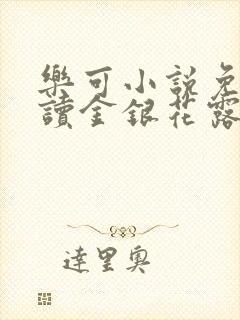 樂可小說免
讀金銀花露
達里奧